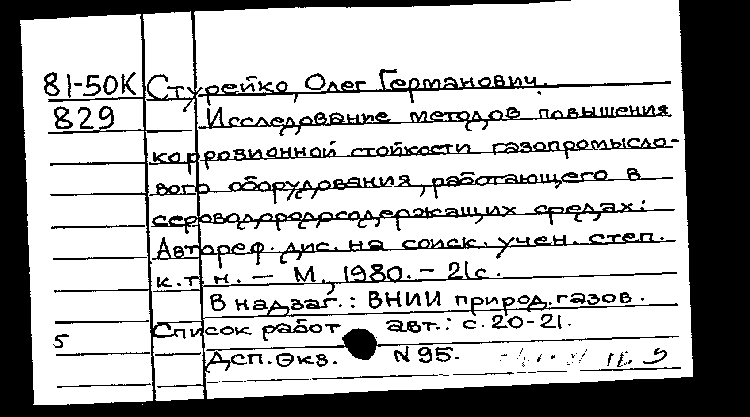 81-50К Стурейко, Олег Германович.
829 Исследование методов повышения
коррозионной стойкости газопромысло-
вого оборудования, работающего в
сероводородсодержащих средах:
Автореф. дис. на соиск. учен. степ.
к.т.н. – М., 1980. – 21с.
В надзаг.: ВНИИ природ. газов.
Список работ авт.: с. 20-21.
5
Дсп. Экз. N 95.